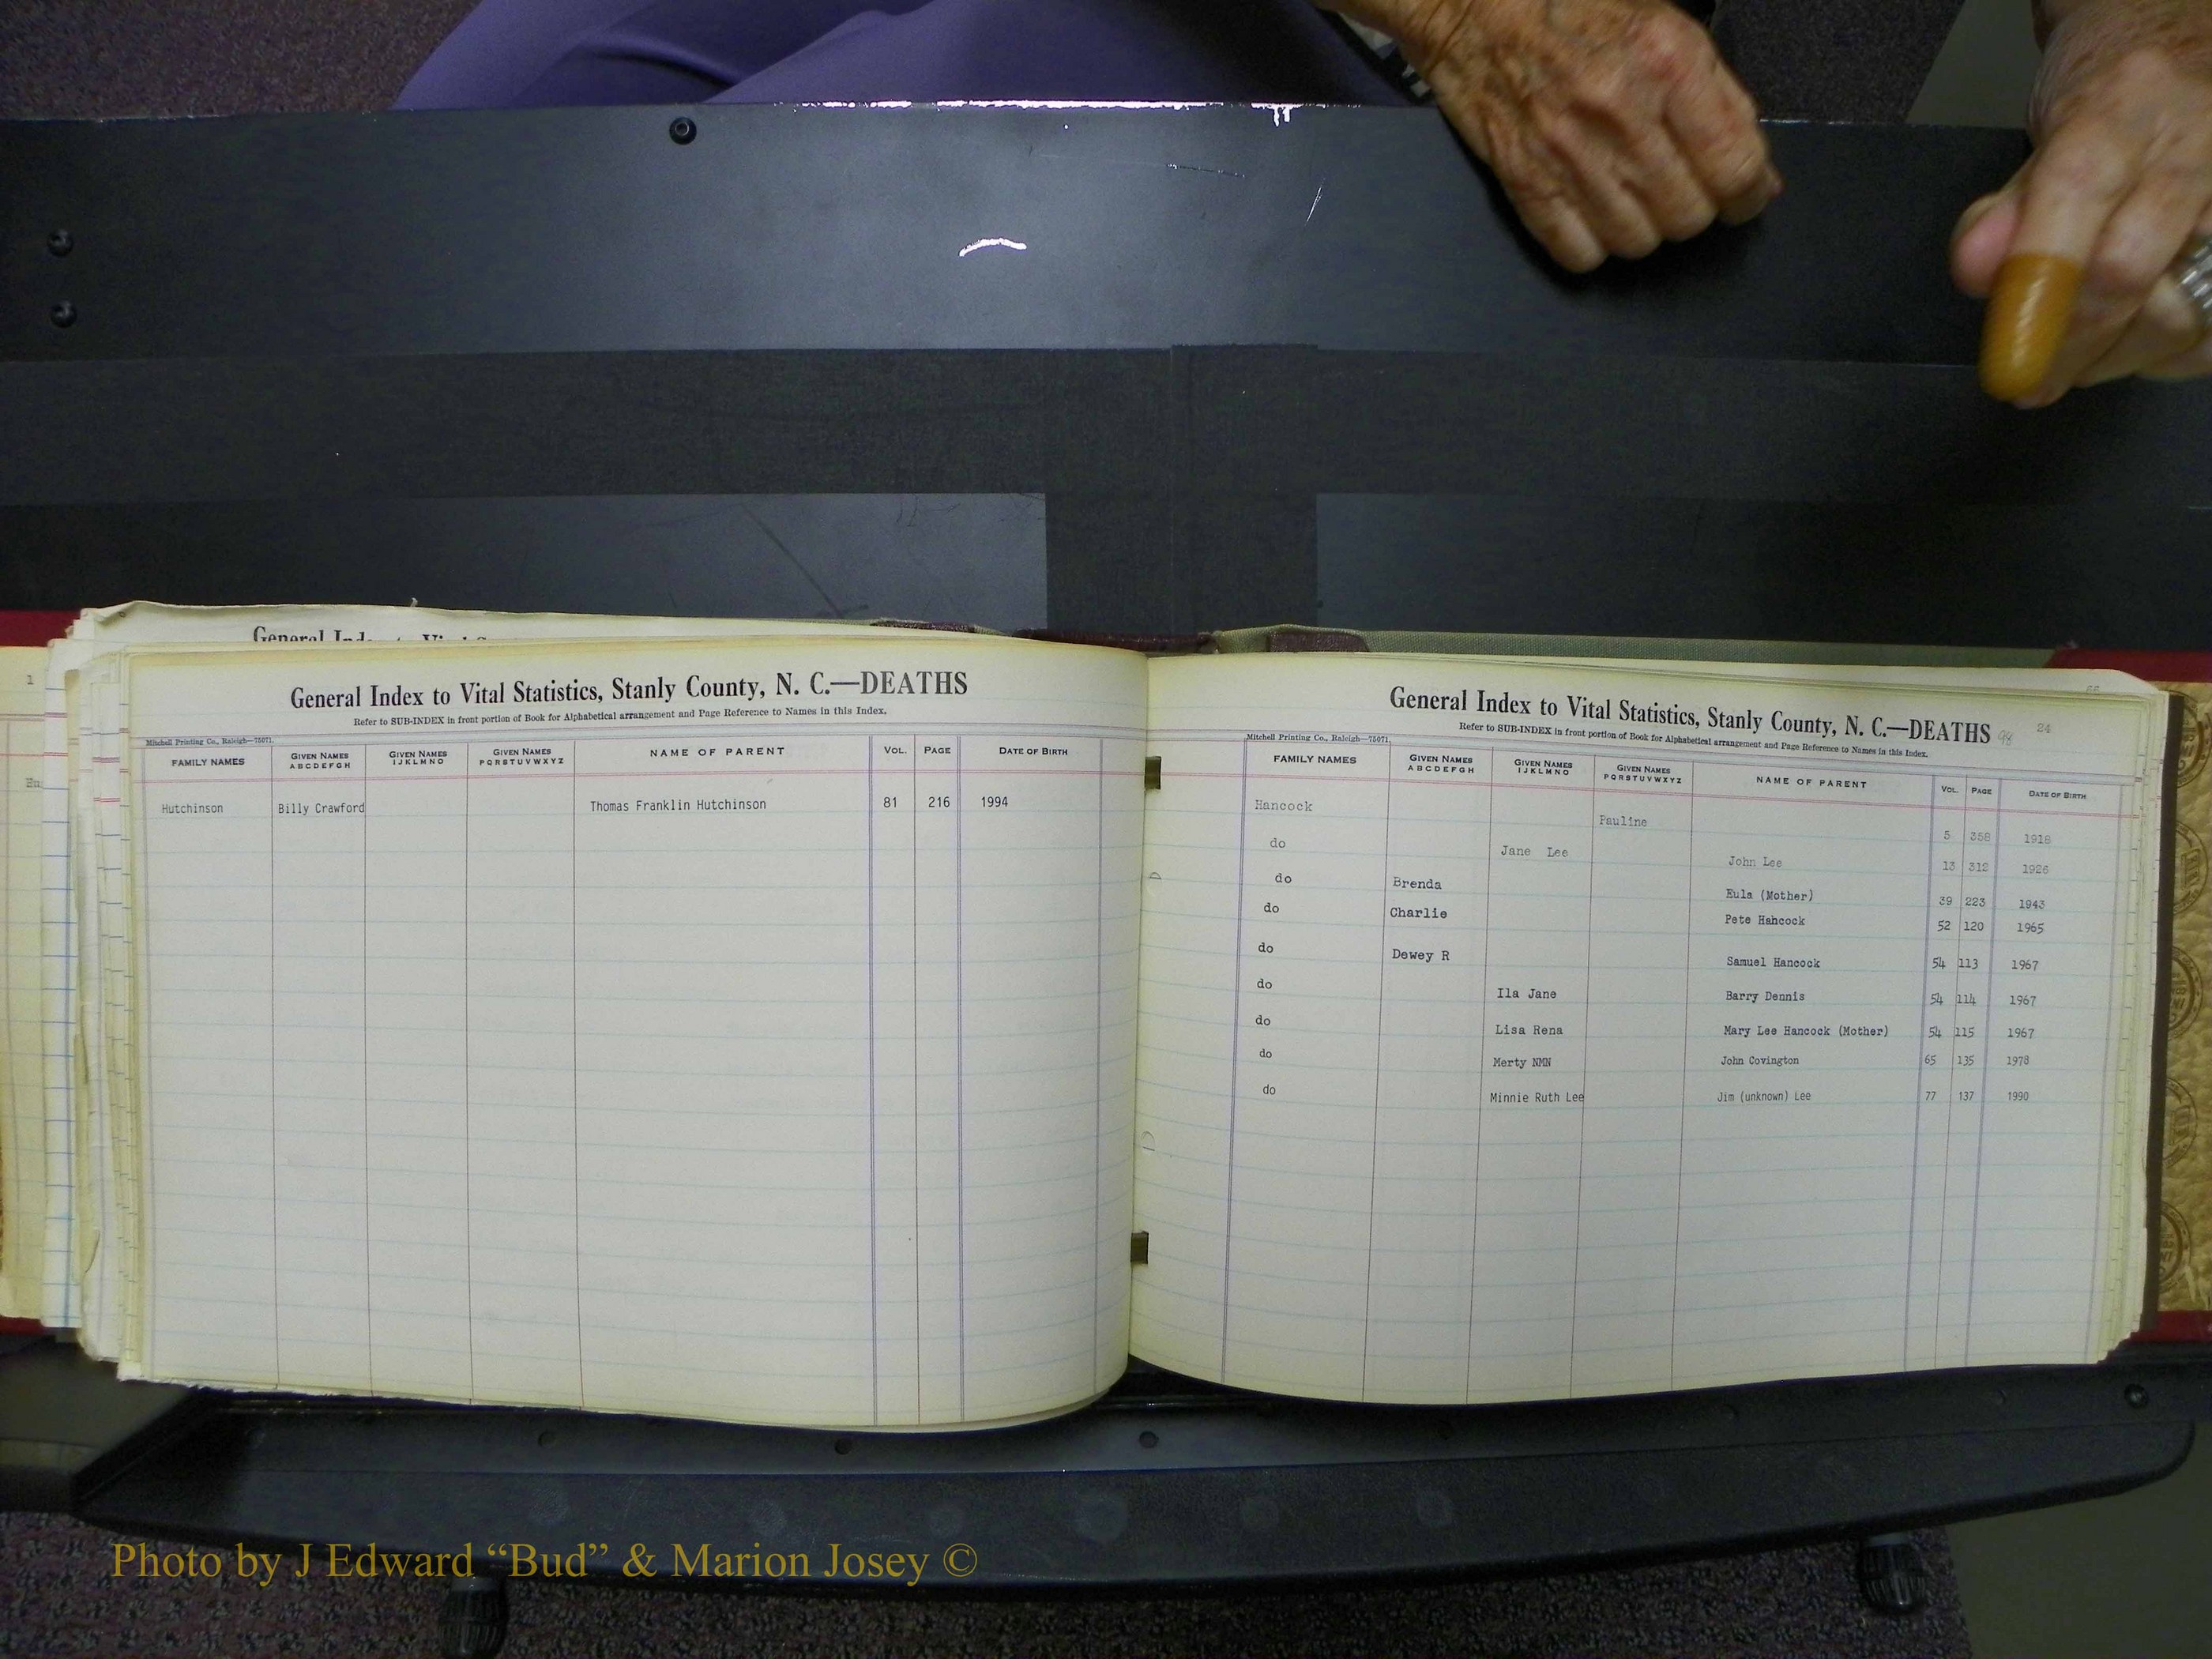 General Index to Vital Statistics, Stanly County, N. C.—DEATHS
Refer to SUB-INDEX in front portion of Book for Alphabetical arrangement and Page Reference to Names in this Index.
Mitchell Printing Co., Raleigh—75071.
FAMILY NAMES GIVEN NAMES ABCDEFGH GIVEN NAMES IJKLMNO GIVEN NAMES PQRSTUVWXYZ NAME OF PARENT VOL. PAGE DATE OF BIRTH
Hutchinson Billy Crawford Thomas Franklin Hutchinson 81 216 1994
General Index to Vital Statistics, Stanly County, N. C.—DEATHS 98 24
Refer to SUB-INDEX in front portion of Book for Alphabetical arrangement and Page Reference to Names in this Index.
Mitchell Printing Co., Raleigh—75071.
FAMILY NAMES GIVEN NAMES ABCDEFGH GIVEN NAMES IJKLMNO GIVEN NAMES PQRSTUVWXYZ NAME OF PARENT VOL. PAGE DATE OF BIRTH
Hancock Pauline 5 358 1918
do Jane Lee John Lee 13 312 1926
do Brenda Eula (Mother) 39 223 1943
do Charlie Pete Hancock 52 120 1965
do Dewey R Samuel Hancock 54 113 1967
do Ila Jane Barry Dennis 54 114 1967
do Lisa Rena Mary Lee Hancock (Mother) 54 115 1967
do Merty NMN John Covington 65 135 1978
do Minnie Ruth Lee Jim (unknown) Lee 77 137 1990
Photo by J Edward “Bud” & Marion Josey ©